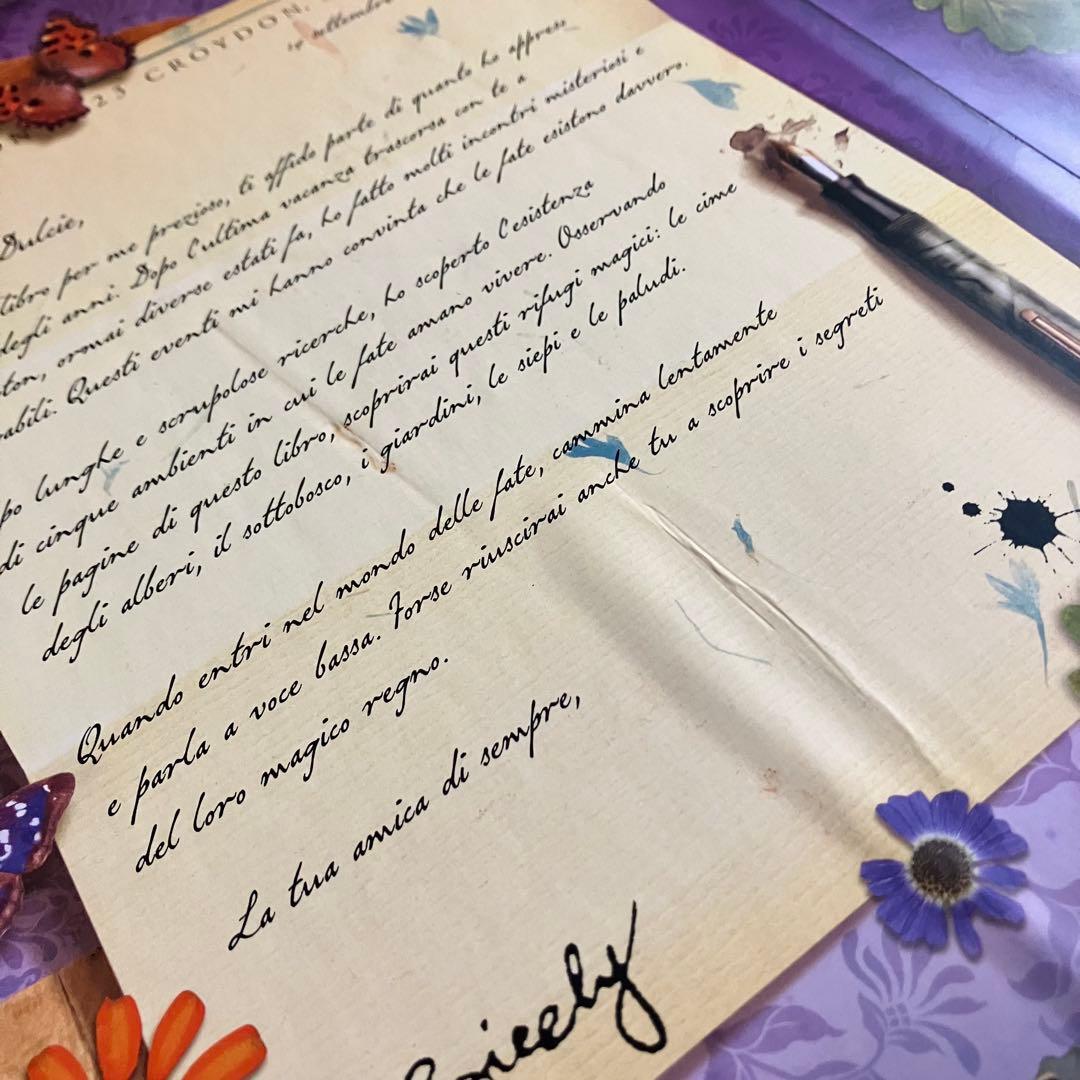 23 CROYDON,
settembre
Dulcie,
libro per me prezioso, ti affido parte di quanto ho appreso
degli anni. Dopo l'ultima vacanza trascorsa con te a
ton, ormai diverse estati fa, ho fatto molti incontri misteriosi e
abili. Questi eventi mi hanno convinta che le fate esistono davvero.
po lunghe e scrupolose ricerche, ho scoperto l'esistenza
di cinque ambienti in cui le fate amano vivere. Osservando
le pagine di questo libro, scoprirai questi rifugi magici: le cime
degli alberi, il sottobosco, i giardini, le siepi e le paludi.
Quando entri nel mondo delle fate, cammina lentamente
e parla a voce bassa. Forse riuscirai anche tu a scoprire i segreti
del loro magico regno.
La tua amica di sempre,